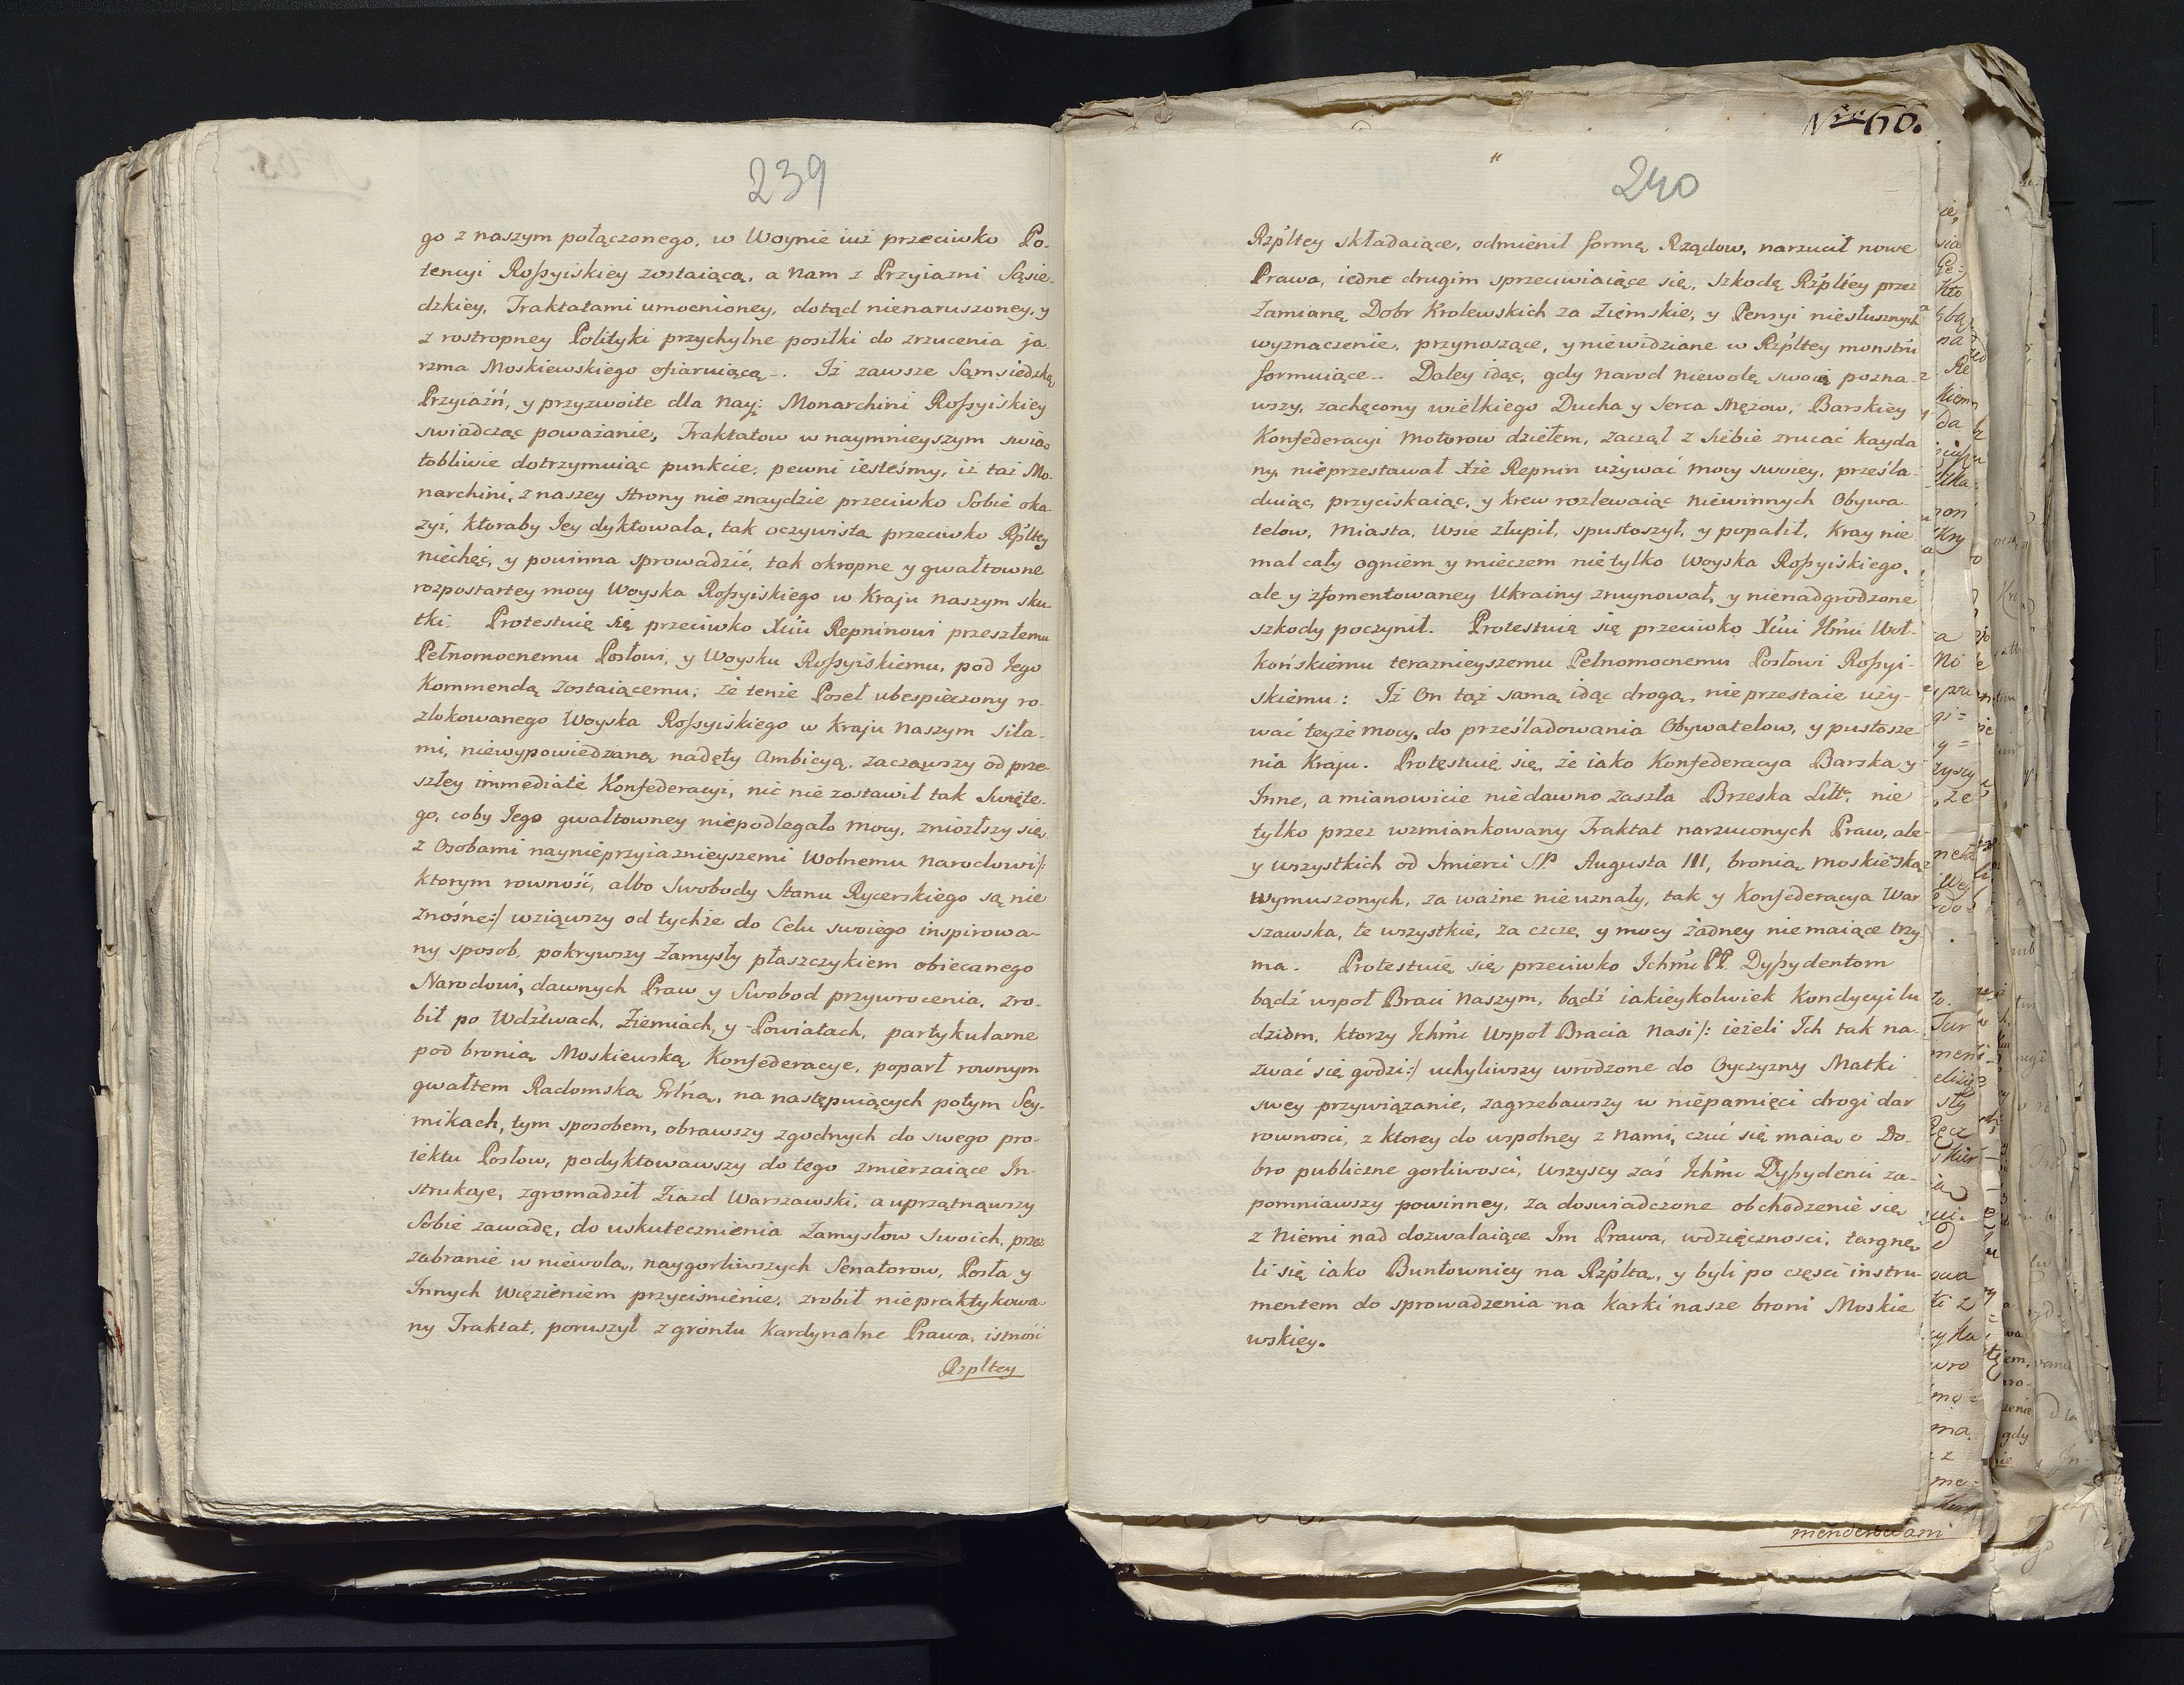 239
go z naszym połączonego, w Woynie iuż przeciwko Po-
tencyi Roſsyiskiey zostaiącą, a nam z Przyiazni Sąsie-
dzkiey, Traktatami umocnioney, dotąd nienaruszoney, y
z rostropney Polityki przychylne posiłki do zrzucenia ja-
rzma Moskiewskiego ofiaruiącą. Iż zawsze Sąmsiedzką
Przyiaźń, y przyzwoite dla Nay: Monarchini Roſsyiskiey
swiadcząc poważanie, Traktatow w naymnieyszym swią-
tobliwie dotrzymuiąc punkcie, pewni iesteśmy, iż taż Mo-
narchini, z naszey strony nie znaydzie przeciwko Sobie oka-
zyi, ktoraby Iey dyktowała, tak oczywistą przeciwko Rpltey
niechęć, y powinna sprowadzić, tak okropne y gwałtowne
rozpostartey mocy Woyska Roſsyiskiego w Kraju naszym sku-
tki. Protestuię się przeciwko Xciu Repninowi przeszłemu
Pełnomocnemu Posłowi, y Woysku Roſsyiskiemu, pod Iego
Kommendą zostaiącemu, że tenże Poseł ubespieczony ro-
zlokowanego Woyska Roſsyiskiego w Kraju naszym siła-
mi, niewypowiedzianą nadęty Ambicyą, zacząwszy od prze-
szłey immediatè Konfederacyi, nic nie zostawił tak Swięte-
go, coby Iego gwałtowney niepodlegało mocy, zniozłszy się
z Osobami naynieprzyiaznieyszemi Wolnemu Narodowi /:
ktorym rowność, albo Swobody Stanu Rycerskiego są nie
znośne:/ wziąwszy od tychże do Celu swoiego inspirowa-
ny sposob, pokrywszy Zamysły płaszczykiem obiecanego
Narodowi, dawnych Praw y Swobod przywrocenia, zro-
bił po Wdztwach, Ziemiach, y Powiatach, partykularne
pod bronią Moskiewską Konfederacye, poparł rownym
gwałtem Radomską Grlną, na następuiących potym Sey-
mikach, tym sposobem, obrawszy zgodnych do swego pro-
iektu Posłow, podyktowawszy do tego zmierzaiące In-
strukcye, zgromadził Ziazd Warszawski, a uprzątnąwszy
Sobie zawadę, do uskutecznienia Zamysłow Swoich, przez
zabranie w niewolą, naygorliwszych Senatorow, Posła y
Innych więzieniem przyciśnienie, zrobił niepraktykowa-
ny Traktat, poruszył z grontu Kardynalne Prawa, istność
Rzpltey
Nro 66.
240
Rzpltey składaiące, odmienił formę Rządow, narzucił nowe
Prawa, iedne drugim sprzeciwiaiące się, szkodę Rzpltey przez
Zamianę Dobr Krolewskich za Ziemskie, y Pensyi niesłusznych
wyznaczenie, przynoszące, y niewidziane w Rzpltey monstra
formuiące. Daley idąc, gdy Narod niewolę swoią pozna-
wszy, zachęcony wielkiego Ducha y Serca Mężow, Barskiey
Konfederacyi Motorow dziełem, zaczął z siebie zrucać kayda-
ny, nieprzestawał Xże Repnin używać mocy swoiey, prześla-
duiąc, przyciskaiąc, y krew rozlewaiąc niewinnych Obywa-
telow, Miasta, Wsie złupił, spustoszył, y popalił, Kray nie-
mal cały ogniem y mieczem nie tylko Woyska Roſsyiskiego,
ale y zfomentowaney Ukrainy zruynował, y nienadgrodzone
szkody poczynił. Protestuię się przeciwko Xciu Jmci Woł-
końskiemu teraznieyszemu Pełnomocnemu Posłowi Roſsyi-
skiemu: Iż On tąż samą idąc drogą, nie przestaie uży-
wać teyże mocy, do prześladowania Obywatelow, y pustosze-
nia Kraju. Protestuię się, że iako Konfederacya Barska y
Inne, a mianowicie niedawno zaszła Brzeska Litt: nie
tylko przez wzmiankowany Traktat narzuconych Praw, ale
y wszystkich od Smierci SP. Augusta III, bronią Moskiewską
wymuszonych, za ważne nie uznały, tak y Konfederacya War-
szawska, te wszystkie, za czcze, y mocy żadney nie maiące trzy-
ma. Protestuię się przeciwko Ichmć PP. Dyſsydentom
bądź wspoł Braci Naszym, bądź iakieykolwiek Kondycyi lu-
dziom, ktorzy Ichmć Wspoł Bracia Nasi /: ieżeli Ich tak na-
zwać się godzi:/ uchyliwszy wrodzone do Oyczyzny Matki
swey przywiązanie, zagrzebawszy w niepamięci drogi dar
rownosci, z ktorey do wspolney z nami, czuć się maią, o Do-
bro publiczne gorliwości, wszyscy zaś Ichmć Dyſsydenci za-
pomniawszy powinney, za doswiadczone obchodzenie się
z Niemi nad dozwalaiące Im Prawa, wdzięcznosci, targnę-
li się iako Buntownicy na Rzpltą, y byli po części instru-
mentem do sprowadzenia na karki nasze broni Moskie-
wskiey.